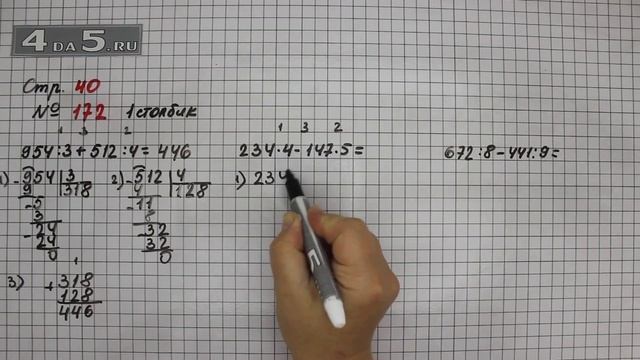 4DA5.RU
Стр. 40
№ 172 1 столбик
1 3 2
954:3+512:4=446
1 3 2
234·4-147·5=
672:8-441:9=
1) -954 3
9 318
-5
3
-24
24
0
2) -512 4
4 128
-11
8
-32
32
0
1) 234
3) 1
+318
128
446